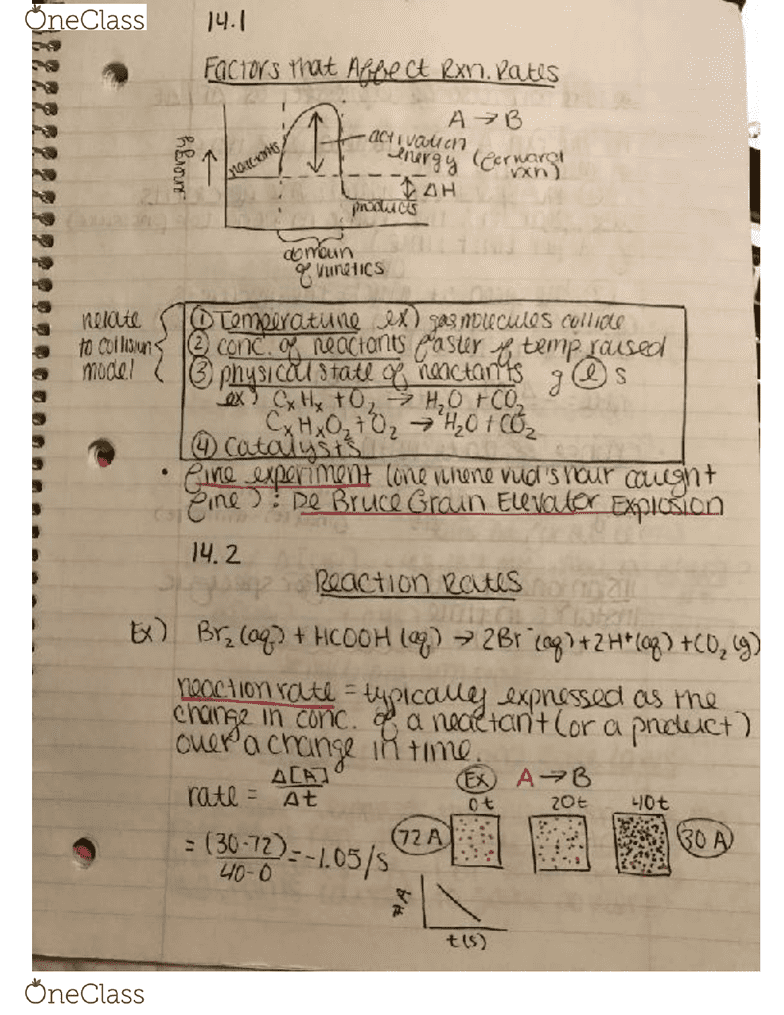 OneClass
14.1
Factors that Affect Rxn. Rates
A → B
reactants
activation
energy (forward
rxn)
ΔH
products
domain
of kinetics
relate
to collision
model
① Temperature ex) gas molecules collide
② conc. of reactants faster if temp raised
③ physical state of reactants g l s
ex) CxHx + O2 → H2O + CO2
CxHxO2 + O2 → H2O + CO2
④ Catalysts
• fire experiment (one where hair caught
fire) : De Bruce Grain Elevator Explosion
14.2
Reaction Rates
Ex) Br2 (aq) + HCOOH (aq) → 2Br⁻ (aq) + 2H⁺ (aq) + CO2 (g)
reaction rate = typically expressed as the
change in conc. of a reactant (or a product)
over a change in time.
rate = Δ[A] / Δt
Ex A → B
0t 20t 40t
72 A 30 A
= (30-72) / 40-0 = -1.05/s
#A
t(s)
OneClass